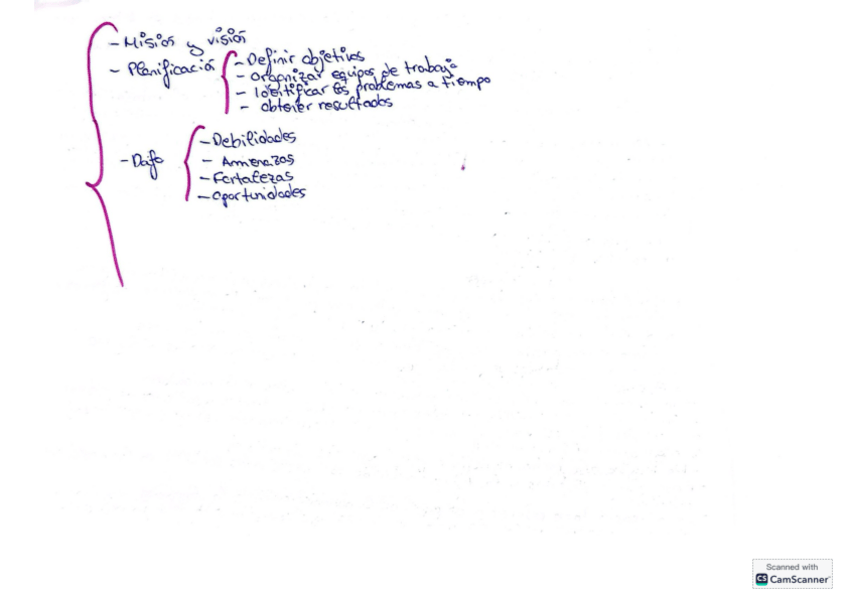 - Misión y visión
- Planificación
- Definir objetivos
- organizar equipos de trabajo
- Identificar los problemas a tiempo
- obtener resultados
- Dafo
- Debilidades
- Amenazas
- Fortalezas
- Oportunidades
Scanned with
CS CamScanner